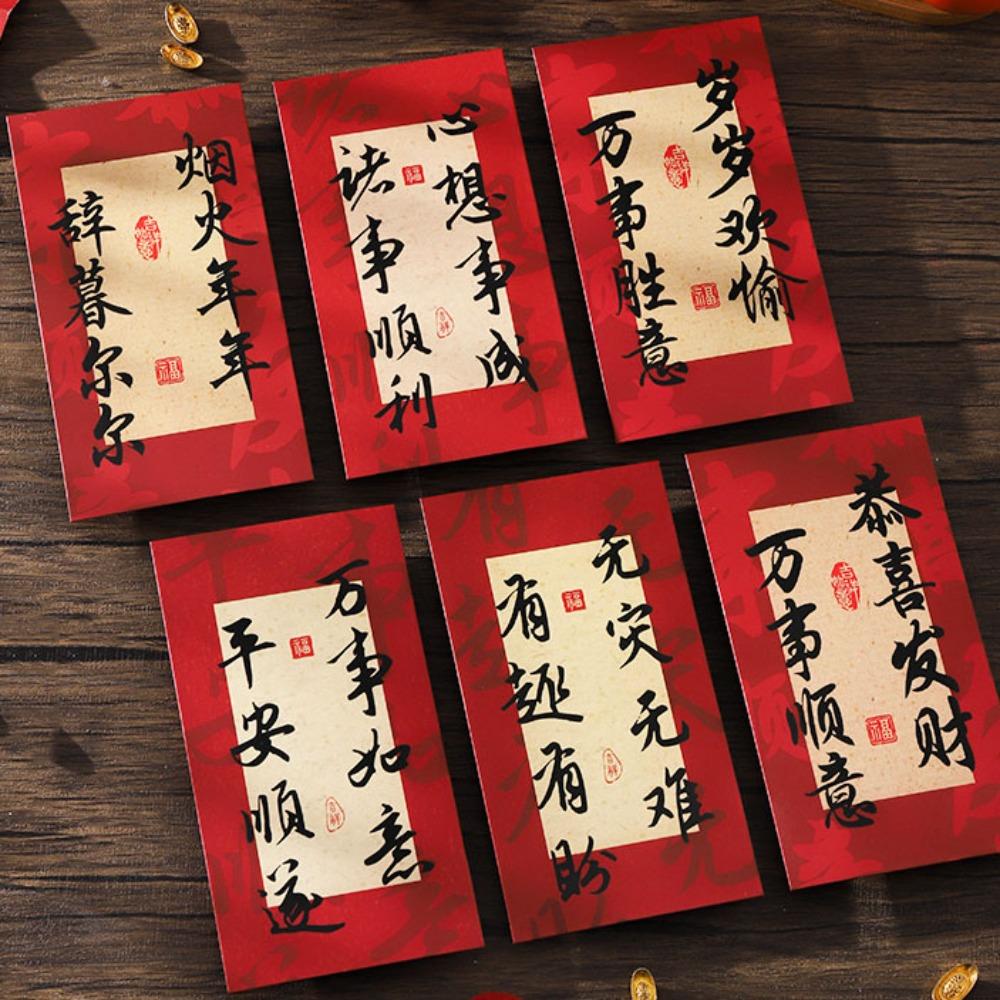 烟火年年
辞暮尔尔
福
心想事成
诸事顺利
福
吉祥
岁岁欢愉
万事胜意
福
万事如意
平安顺遂
福
吉祥
无灾无难
有趣有盼
福
吉祥
恭喜发财
万事顺意
福